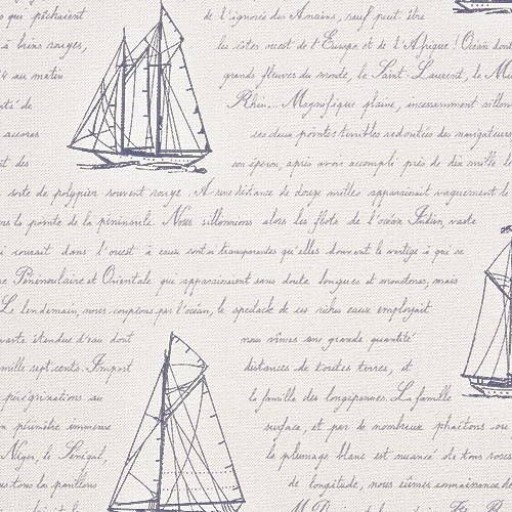 que pêchaient de l'ignorée des Anciens, sauf peut être
à brins rouges, les côtes ouest de l'Europe et de l'Afrique! Océan dont
au matin grands fleuves du monde, le Saint-Laurent, le
de Rhin... Magnifique plaine, incessamment
accores ses deux pointes terribles redoutées des navigateurs
des son éperon, après avoir accompli près de dix mille
sorte de polypier souvent rouge. A une distance de douze milles apparaissait vaguement le
la pointe de la péninsule. Nous sillonnions alors les flots de l'océan Indien, vaste
courait dans l'ouest à eaux sont si transparentes qu'elles donnent le vertige à qui se
Péninsulaire et Orientale qui apparaissent sans doute longues et monotones, mais
Le lendemain, nous coupions par l'océan, le spectacle de ces riches eaux employait
vaste étendue d'eau dont nous vîmes une grande quantité
mille sept cents. Import distances de toutes terres, et
pérégrinations au la famille des longipennes. La famille
périmètre immense surface, et par de nombreux phaétons
Niger, le Sénégal, le plumage blanc est nuancé de tons roses
tous les pavillons de longitude, nous eûmes connaissance de